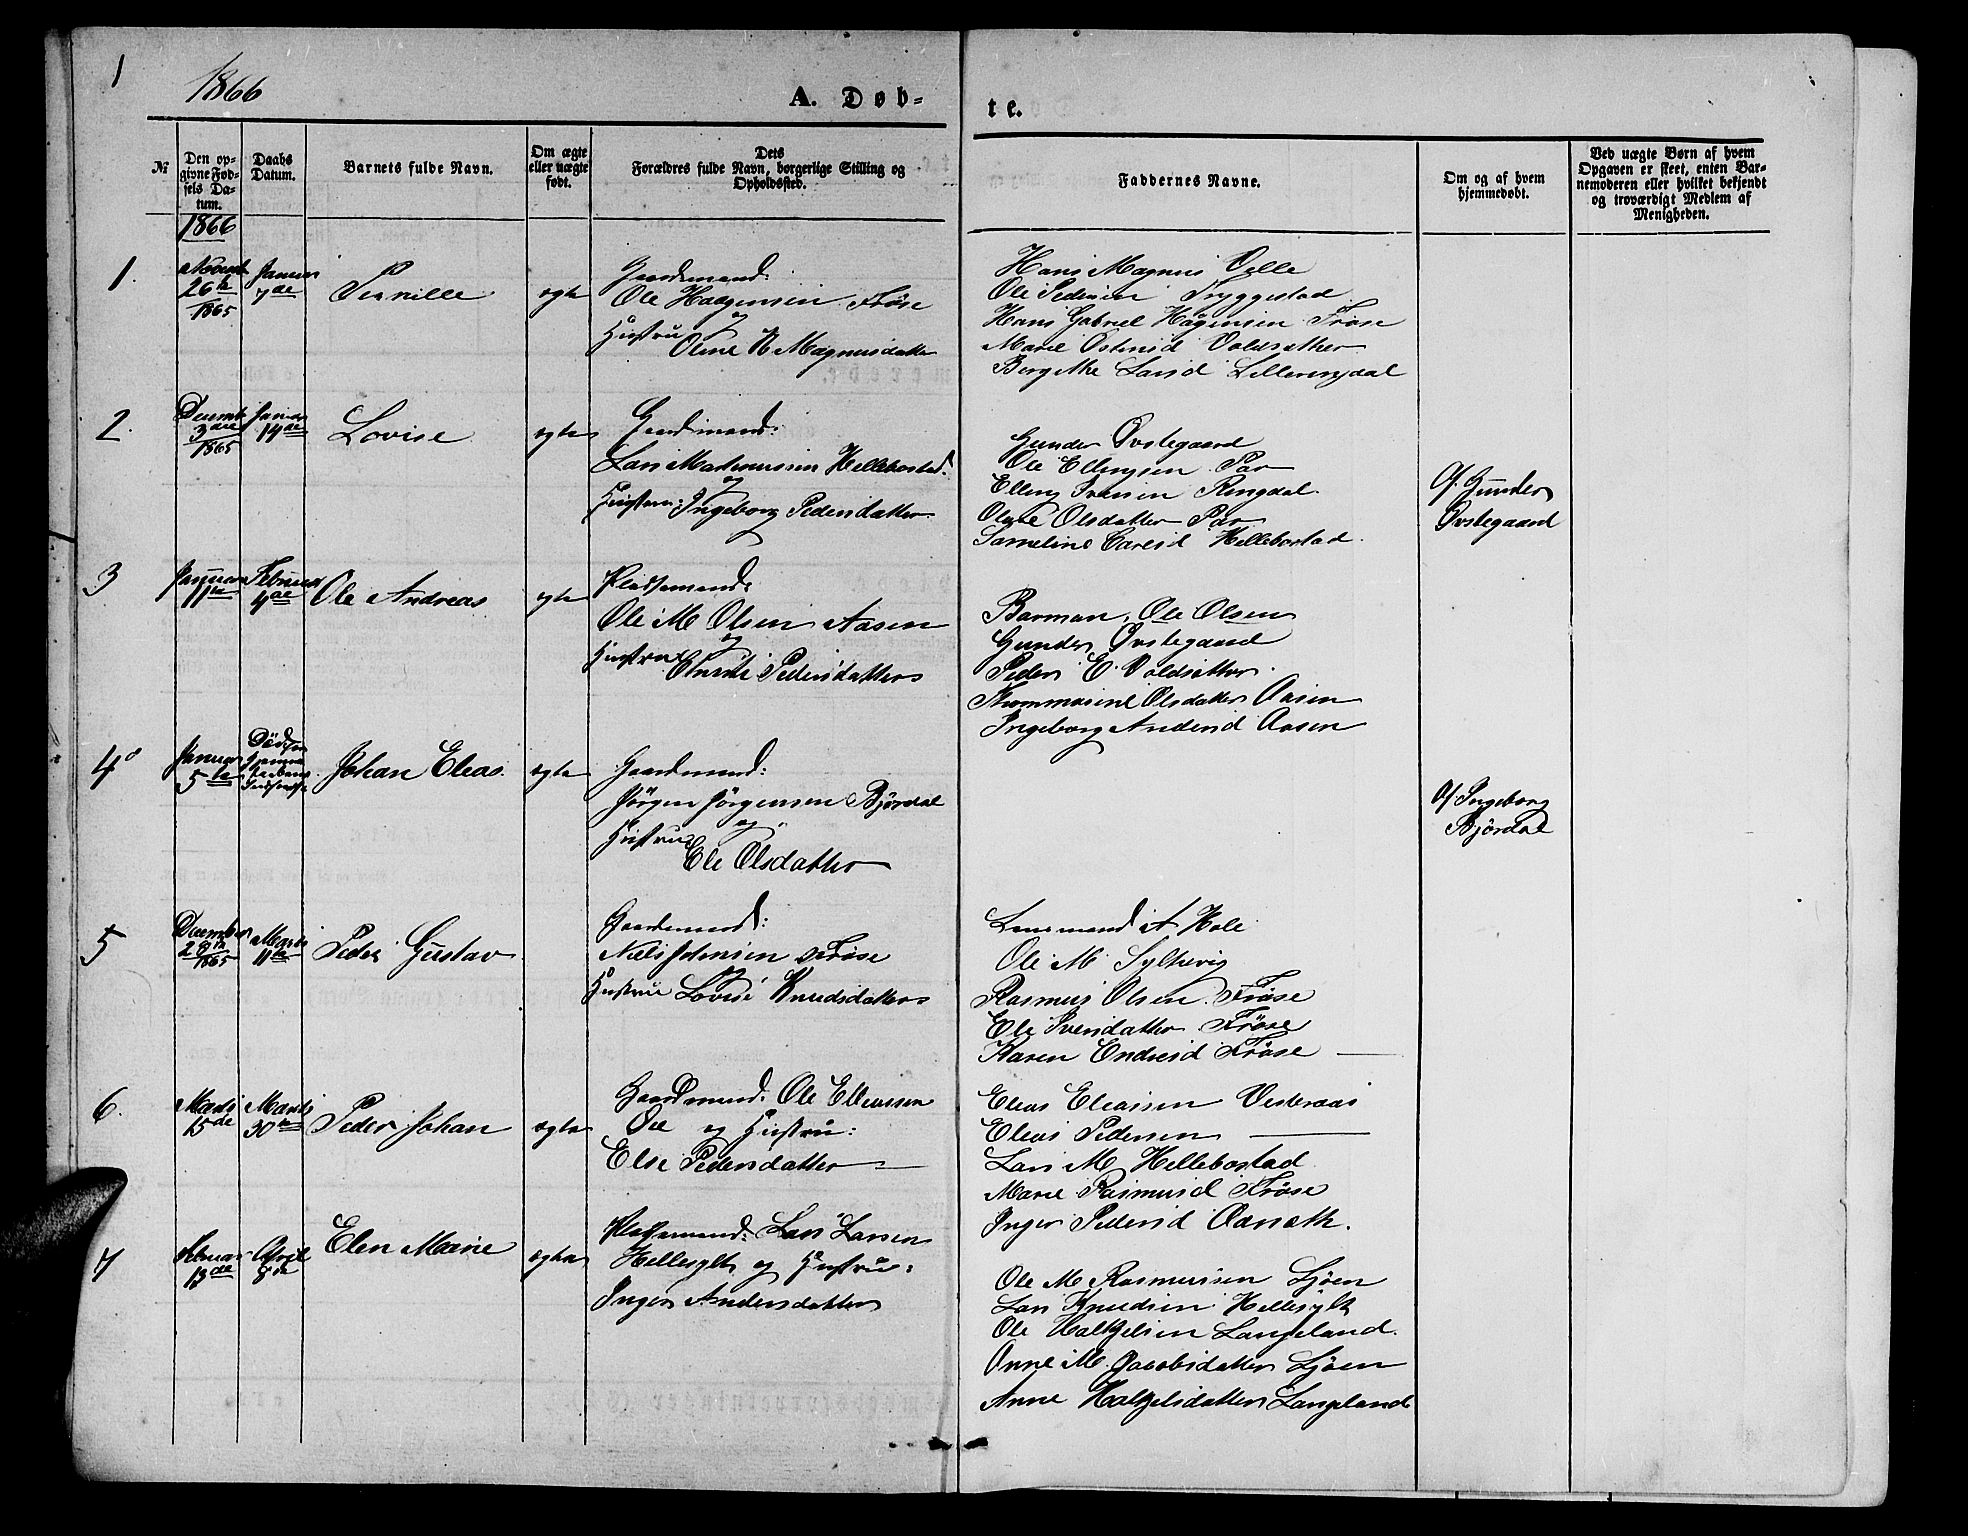 1
1866
A. Døb-
te.
№
Den op-
givne Fød-
sels Da-
tum.
Daabs
Datum.
Barnets fulde Navn.
Om ægte
eller uægte
født.
Dets
Forældres fulde Navn, borgerlige Stilling og
Opholdssted.
Faddernes Navne.
Om og af hvem
hjemmedøbt.
Ved uægte Børn af hvem
Opgaven er skeet, enten Bar-
nemoderen eller hvilket bekjendt
og troværdigt Medlem af
Menigheden.
1866
1.
Novemb
26te
1865
Januar
7de
Pernille
ægte
Gaardmand:
Ole Haagensen Frøse
og
Hustru
Oline N Magnusdatter
Hans Magnus Velle
Ole Pedersen Tryggestad
Hans Gabriel Hågensen Frøse
Marie Østensd Voldsætter
Bergithe Larsd Lillerengdal
2.
Decemb
3die
1865
Januar
14de
Lovise
ægte
Gaardmand:
Lars Mathiussen Hellebostad
og
Hustru: Ingeborg Pedersdatter
Gunder Øvstegaard
Ole Ellingsen
Elling Iversen Rengdal
Olsdatter
Hellebostad
Af Gunder
Øvstegaard
3
Januar
11te
Februar
4de
Ole Andreas
ægte
Pladsemand:
Ole M Olsen Aasen
og
Hustru
Pedersdatter
Ole Olsen
Gunder Øvstegaard
Peder E. Voldsætter
Thommasine Olsdatter Aasen
Ingeborg Andersd Aasen
4
Januar
5te
Død
Johan Eleas
ægte
Gaardmand:
Jørgen Jørgensen Bjørdal
og
Hustru
Ele Olsdatter
Af Ingeborg
Bjørdal
5
December
28de
1865
Marts
11te
Peder Gustav
Gaardmand:
Niels Jetmsen Frøse
og
Hustru Lovise Knudsdatter
Lensmand A Hole
Ole M. Sylthevig
Rasmus Olsen Frøse
Ele Svendatter Frøse
Karen Endresd Frøse
6.
Marts
15de
Marts
30te
Peder Johan
ægte
Gaardmand: Ole Elleussen
Øie og Hustru:
Else Pedersdatter
Eleas Eleassen Vesteraas
Eleas Pedersen
Lars M Hellebostad
Marie Rasmusd Frøse
Inger Pedersd
7
Februar
13de
April
8de
Elen Marie
ægte
Pladsemand: Lars Larsen
Hellesylt og Hustru:
Inger Andersdatter
Ole M Rasmussen Ljøen
Lars Knudsen Hellesylt
Ole Halkjelsen Langeland
Anne M. Jacobsdatter Ljøen
Anne Halkjelsdatter Langeland